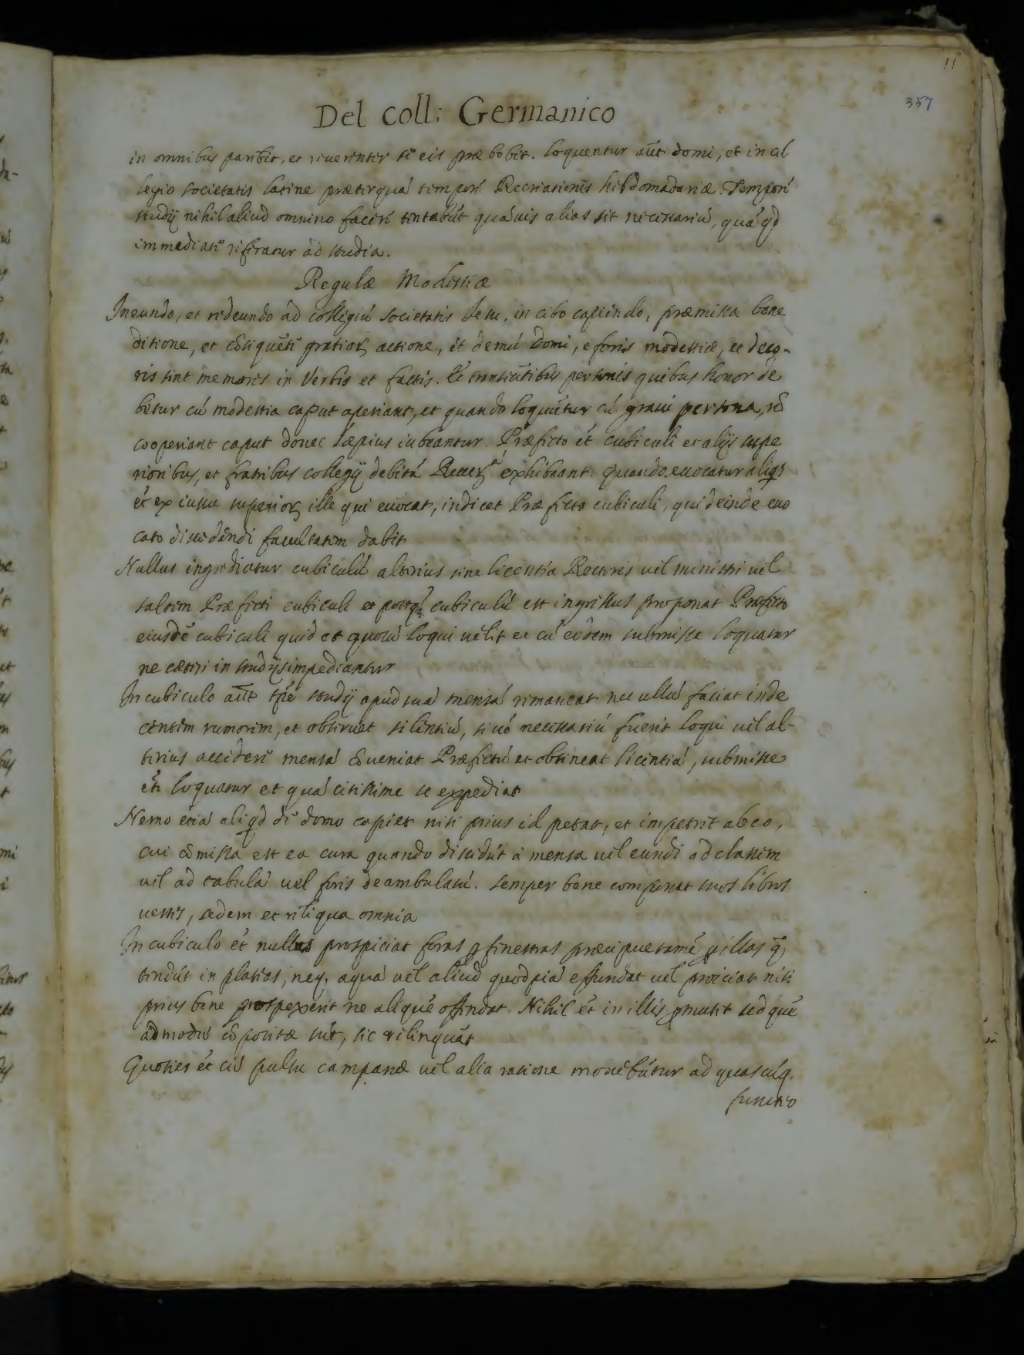 11
357
Del coll: Germanico
in omnibus parebit, et reverenter se eis præbebit. loquentur aũt domi, et in col
legio societatis latine præterquá tempore Recreationis hebdomadariæ. Tempore
studij nihil aliud omnino facere tentabút quáuis alias sit necessariú, quá qd
immediate referatur ad studia.
Regulæ Modestiæ
In eundo, et redeundo ad collegiú societatis Jesu, in cibo capiendo, præmissa bene
ditione, et cõsequẽti gratiarꝫ actione, et demú domi, e foris modestiæ, et deco-
ris sint memores in verbis et factis. Et transeũtibus personis quibus honor de
betur cú modestia caput aperiant, et quando loquẽtur cú graui persona, nõ
cooperiant caput donec sæpius iubeantur. Præfecto ét cubiculi et alijs supe
rioribus, et fratribus collegij debitá exhibeant. Quando euocatur aliqs
ét ex iussu superiorꝫ ille qui euocat, indicet Præfecto cubiculi, qui deinde euo
cato discedendi facultatem dabit
Nullus ingrediatur cubiculú alterius sine licentia Rectoris uel ministri uel
saltem Præfecti cubiculi et postq̃ cubiculú est ingressus proponat Præfecto
eiusdé cubiculi quid et quocú loqui uelit et cú eodem submisse loquatur
ne cæteri in studijs impediantur
In cubiculo aũt tp̃e studij apud suá mensá remaneat nec ullú faciat inde
centem rumorem, et obseruet silentiú, si uó necessariú fuerit loqui uel al-
terius accidere mensá cõueniat Præfectú et obtineat licentiá, submisse
loquatur et quá citissime se expediat
Nemo etiá aliqd de domo capiet nisi prius id petat, et impetret ab eo,
cui cõmissa est ea cura quando discedút a mensa uel eundi ad classem
uel ad tabulá uel foris deambulatú. semper bene componat suos libros
uestes, sedem et reliqua omnia
In cubiculo ét nullus prospiciat foras ꝑ finestras præcipue tamé ꝑ illas q̃
tendút in plateas, neqꝫ aquá uel aliud quodpiá effundat uel proiciat nisi
prius bene prospexerit ne aliqué offendat. Nihil ét in illis ꝑmutet sed qué
admodú cõpositæ sút, sic relinquãt
Quoties ét cú pulsu campanæ uel alia ratione mouebútur ad quascúqꝫ
functio